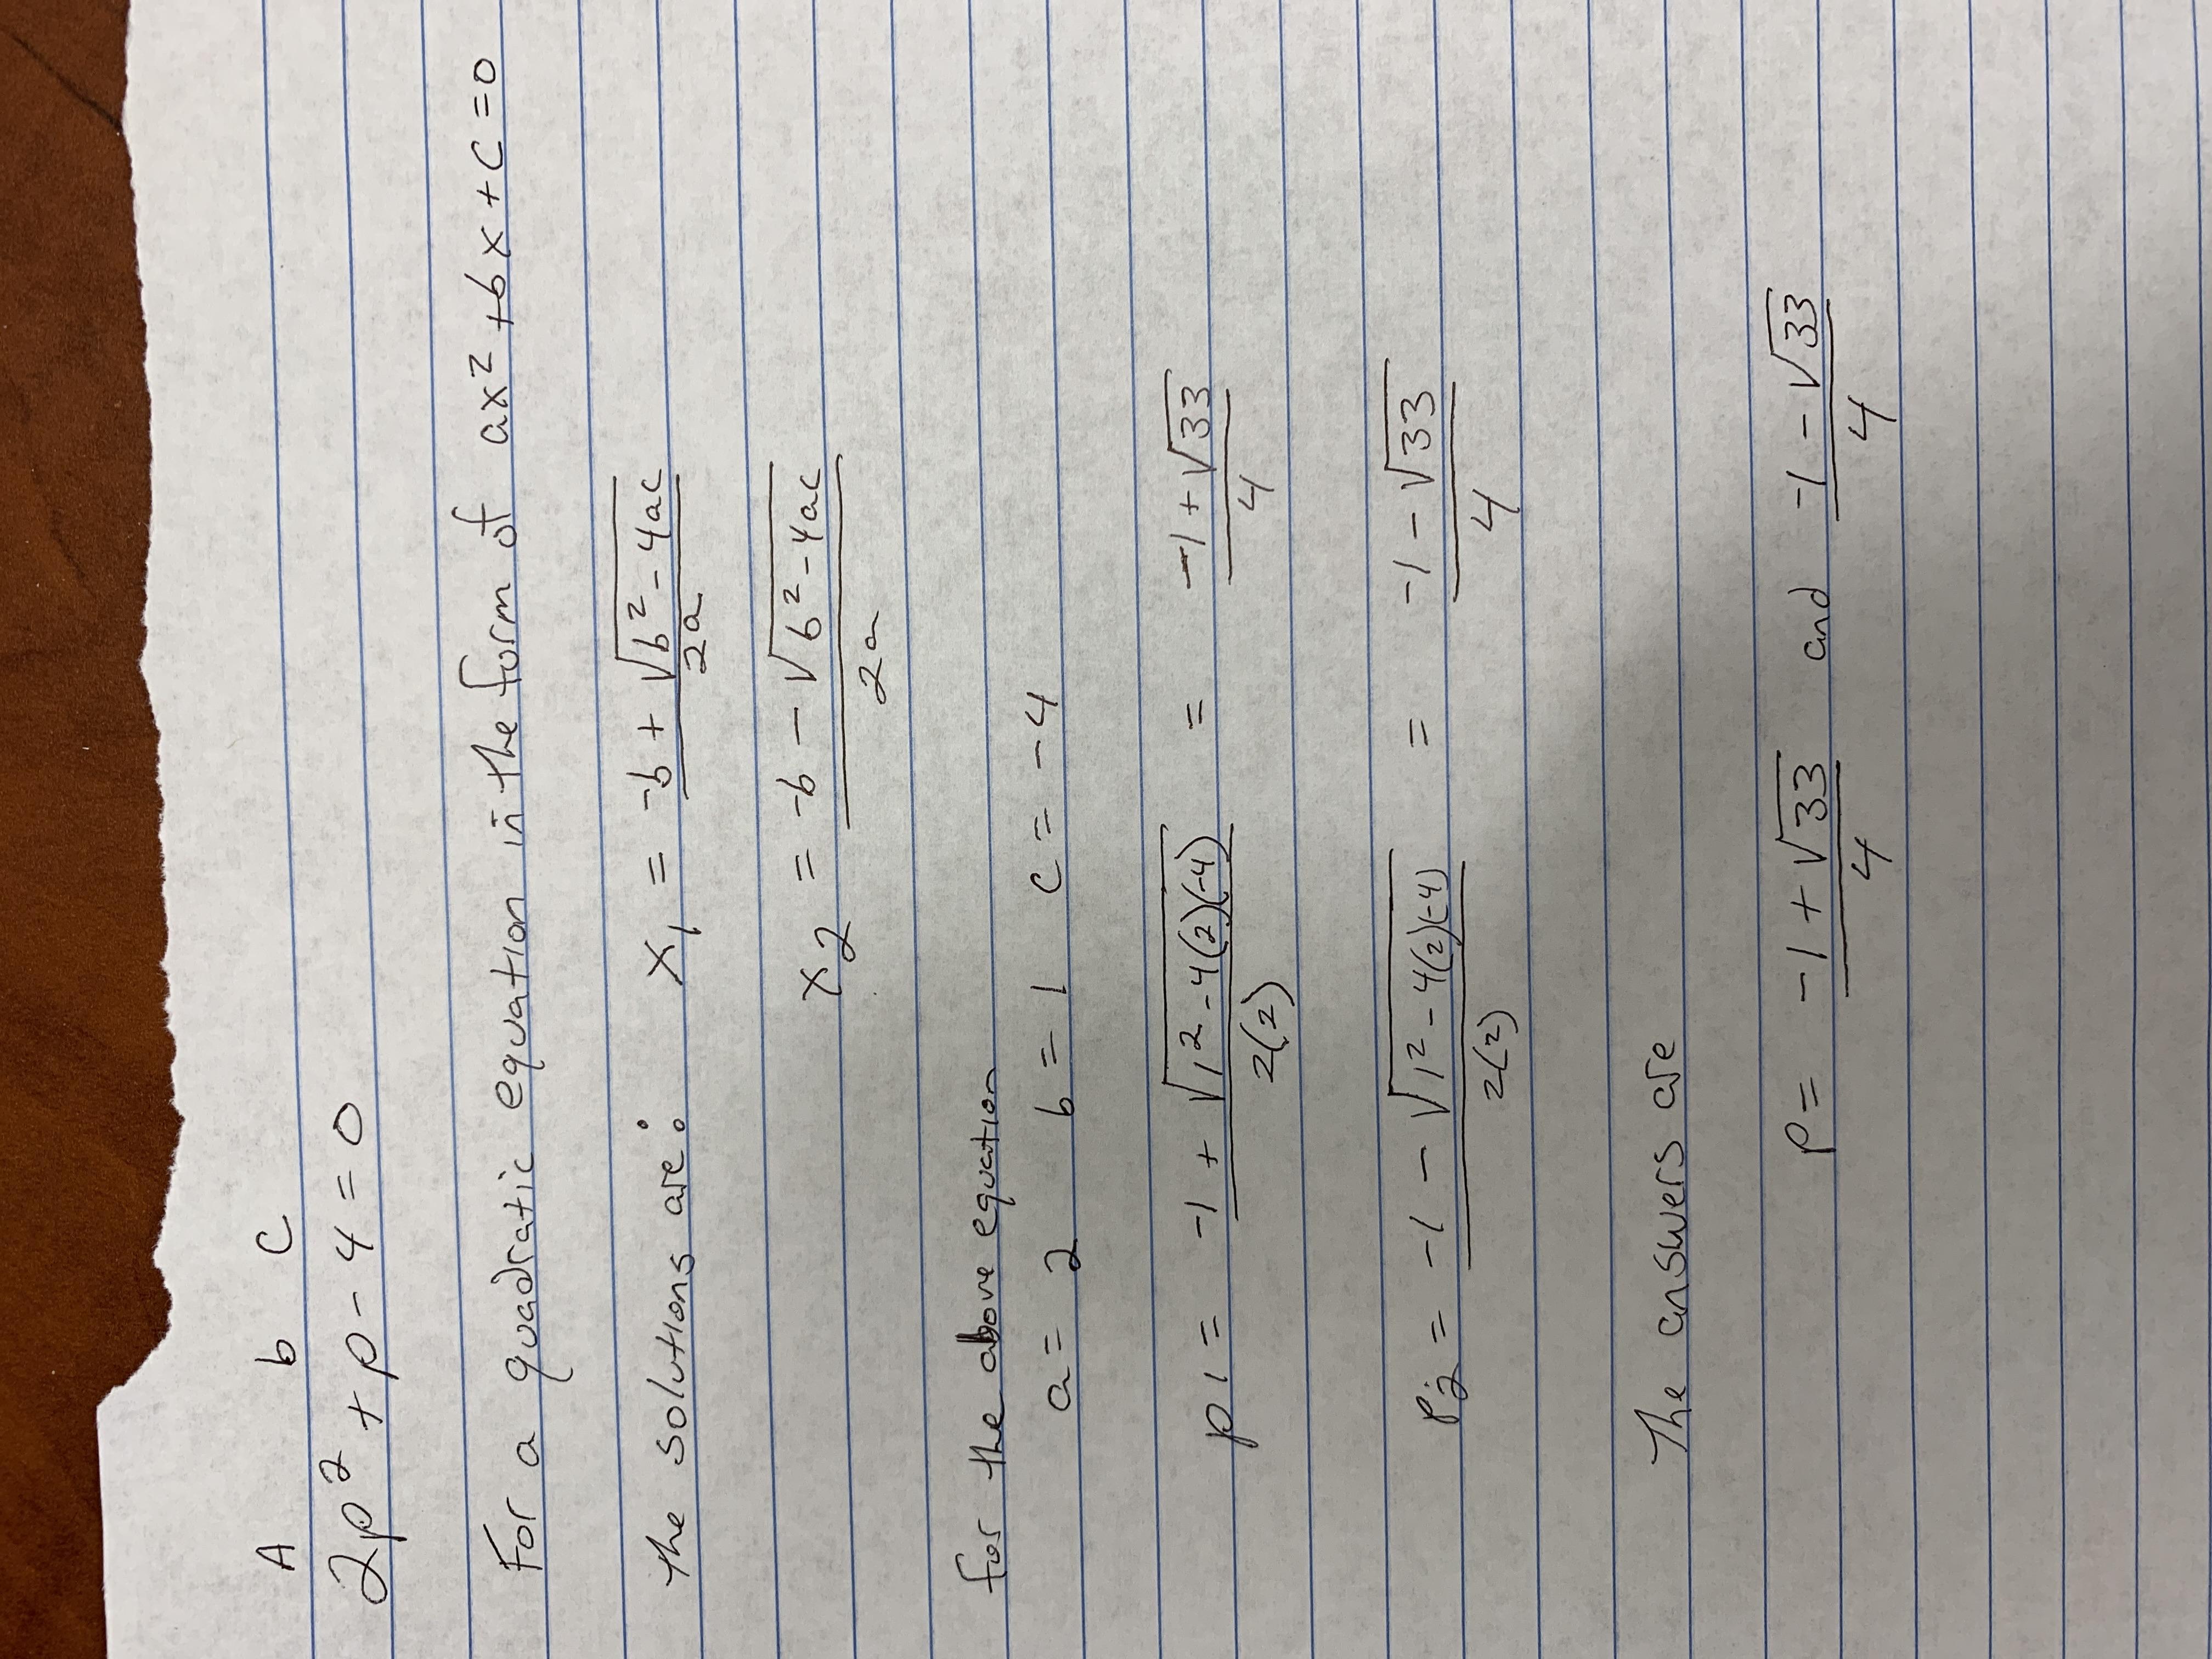 A b C
2p² + p - 4 = 0
For a quadratic equation in the form of ax² + bx + C = 0
the solutions are: x₁ = (-b + √(b² - 4ac)) / 2a
x₂ = (-b - √(b² - 4ac)) / 2a
for the above equation
a = 2 b = 1 c = -4
p1 = (-1 + √(1² - 4(2)(-4))) / 2(2) = (-1 + √33) / 4
p2 = (-1 - √(1² - 4(2)(-4))) / 2(2) = (-1 - √33) / 4
The answers are
p = (-1 + √33) / 4 and (-1 - √33) / 4